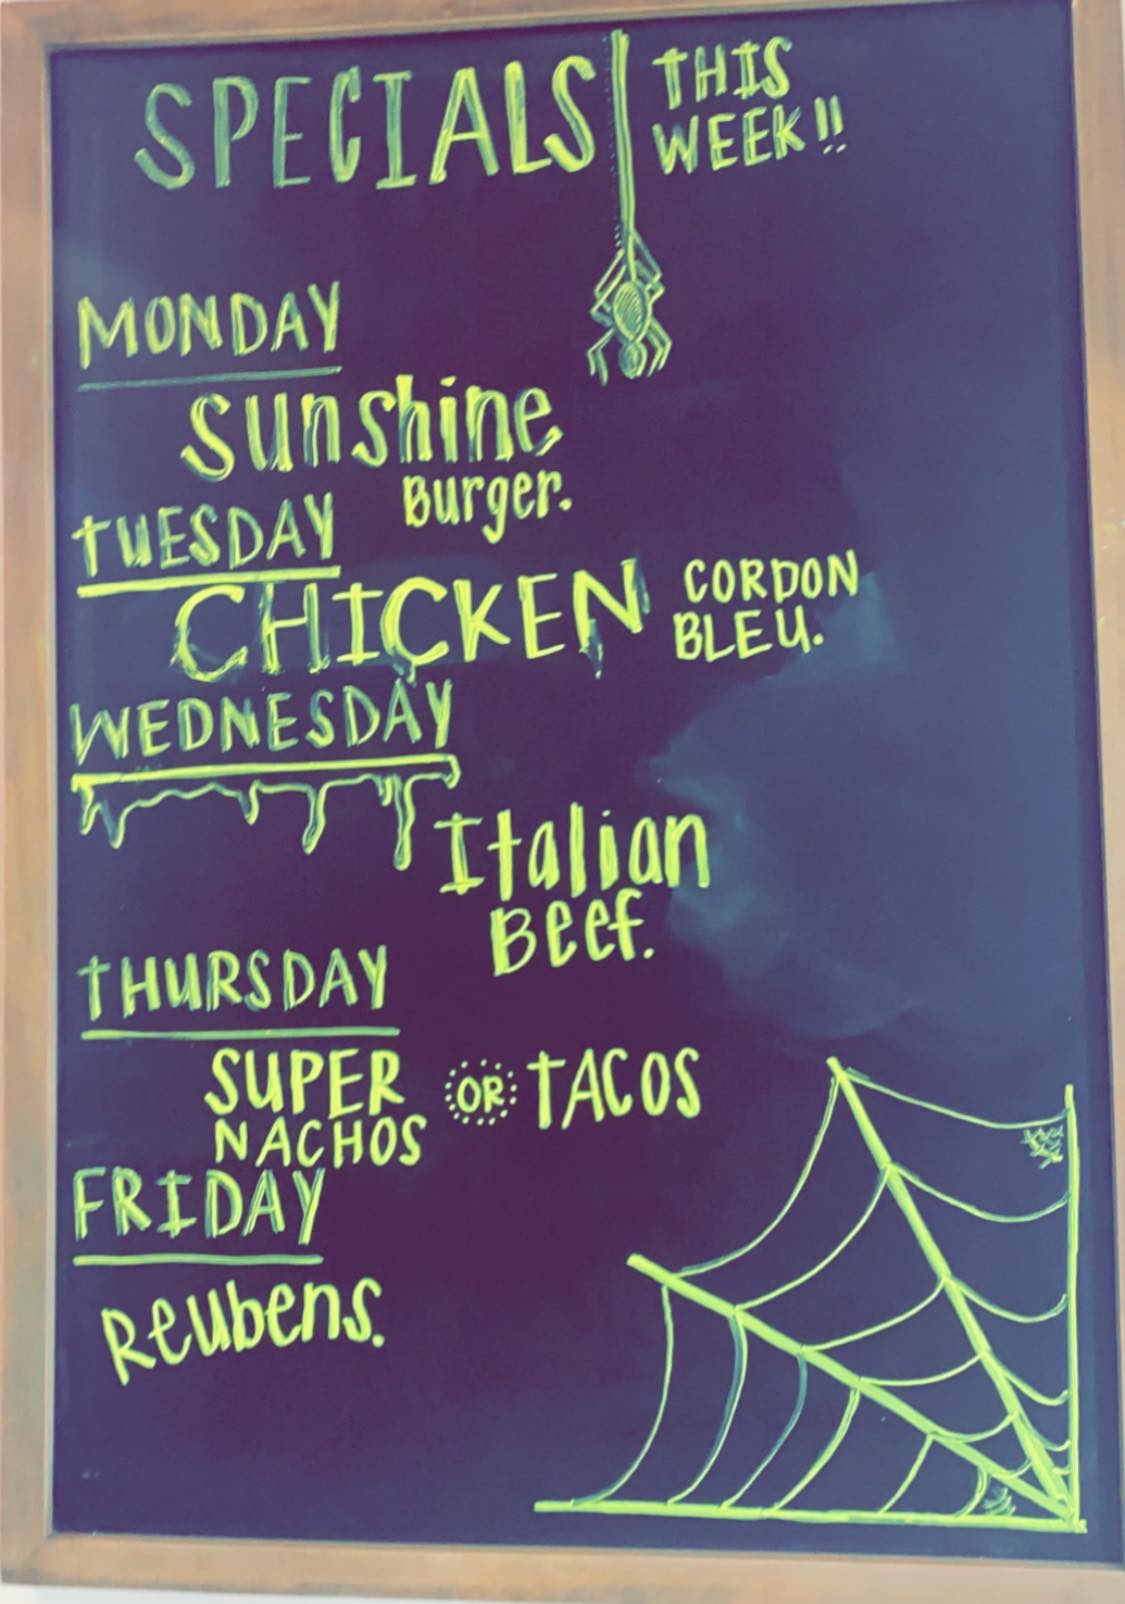 SPECIALS THIS WEEK!!
MONDAY
Sunshine
Burger.
TUESDAY
CHICKEN CORDON BLEU.
WEDNESDAY
Italian
Beef.
THURSDAY
SUPER NACHOS OR TACOS
FRIDAY
Reubens.